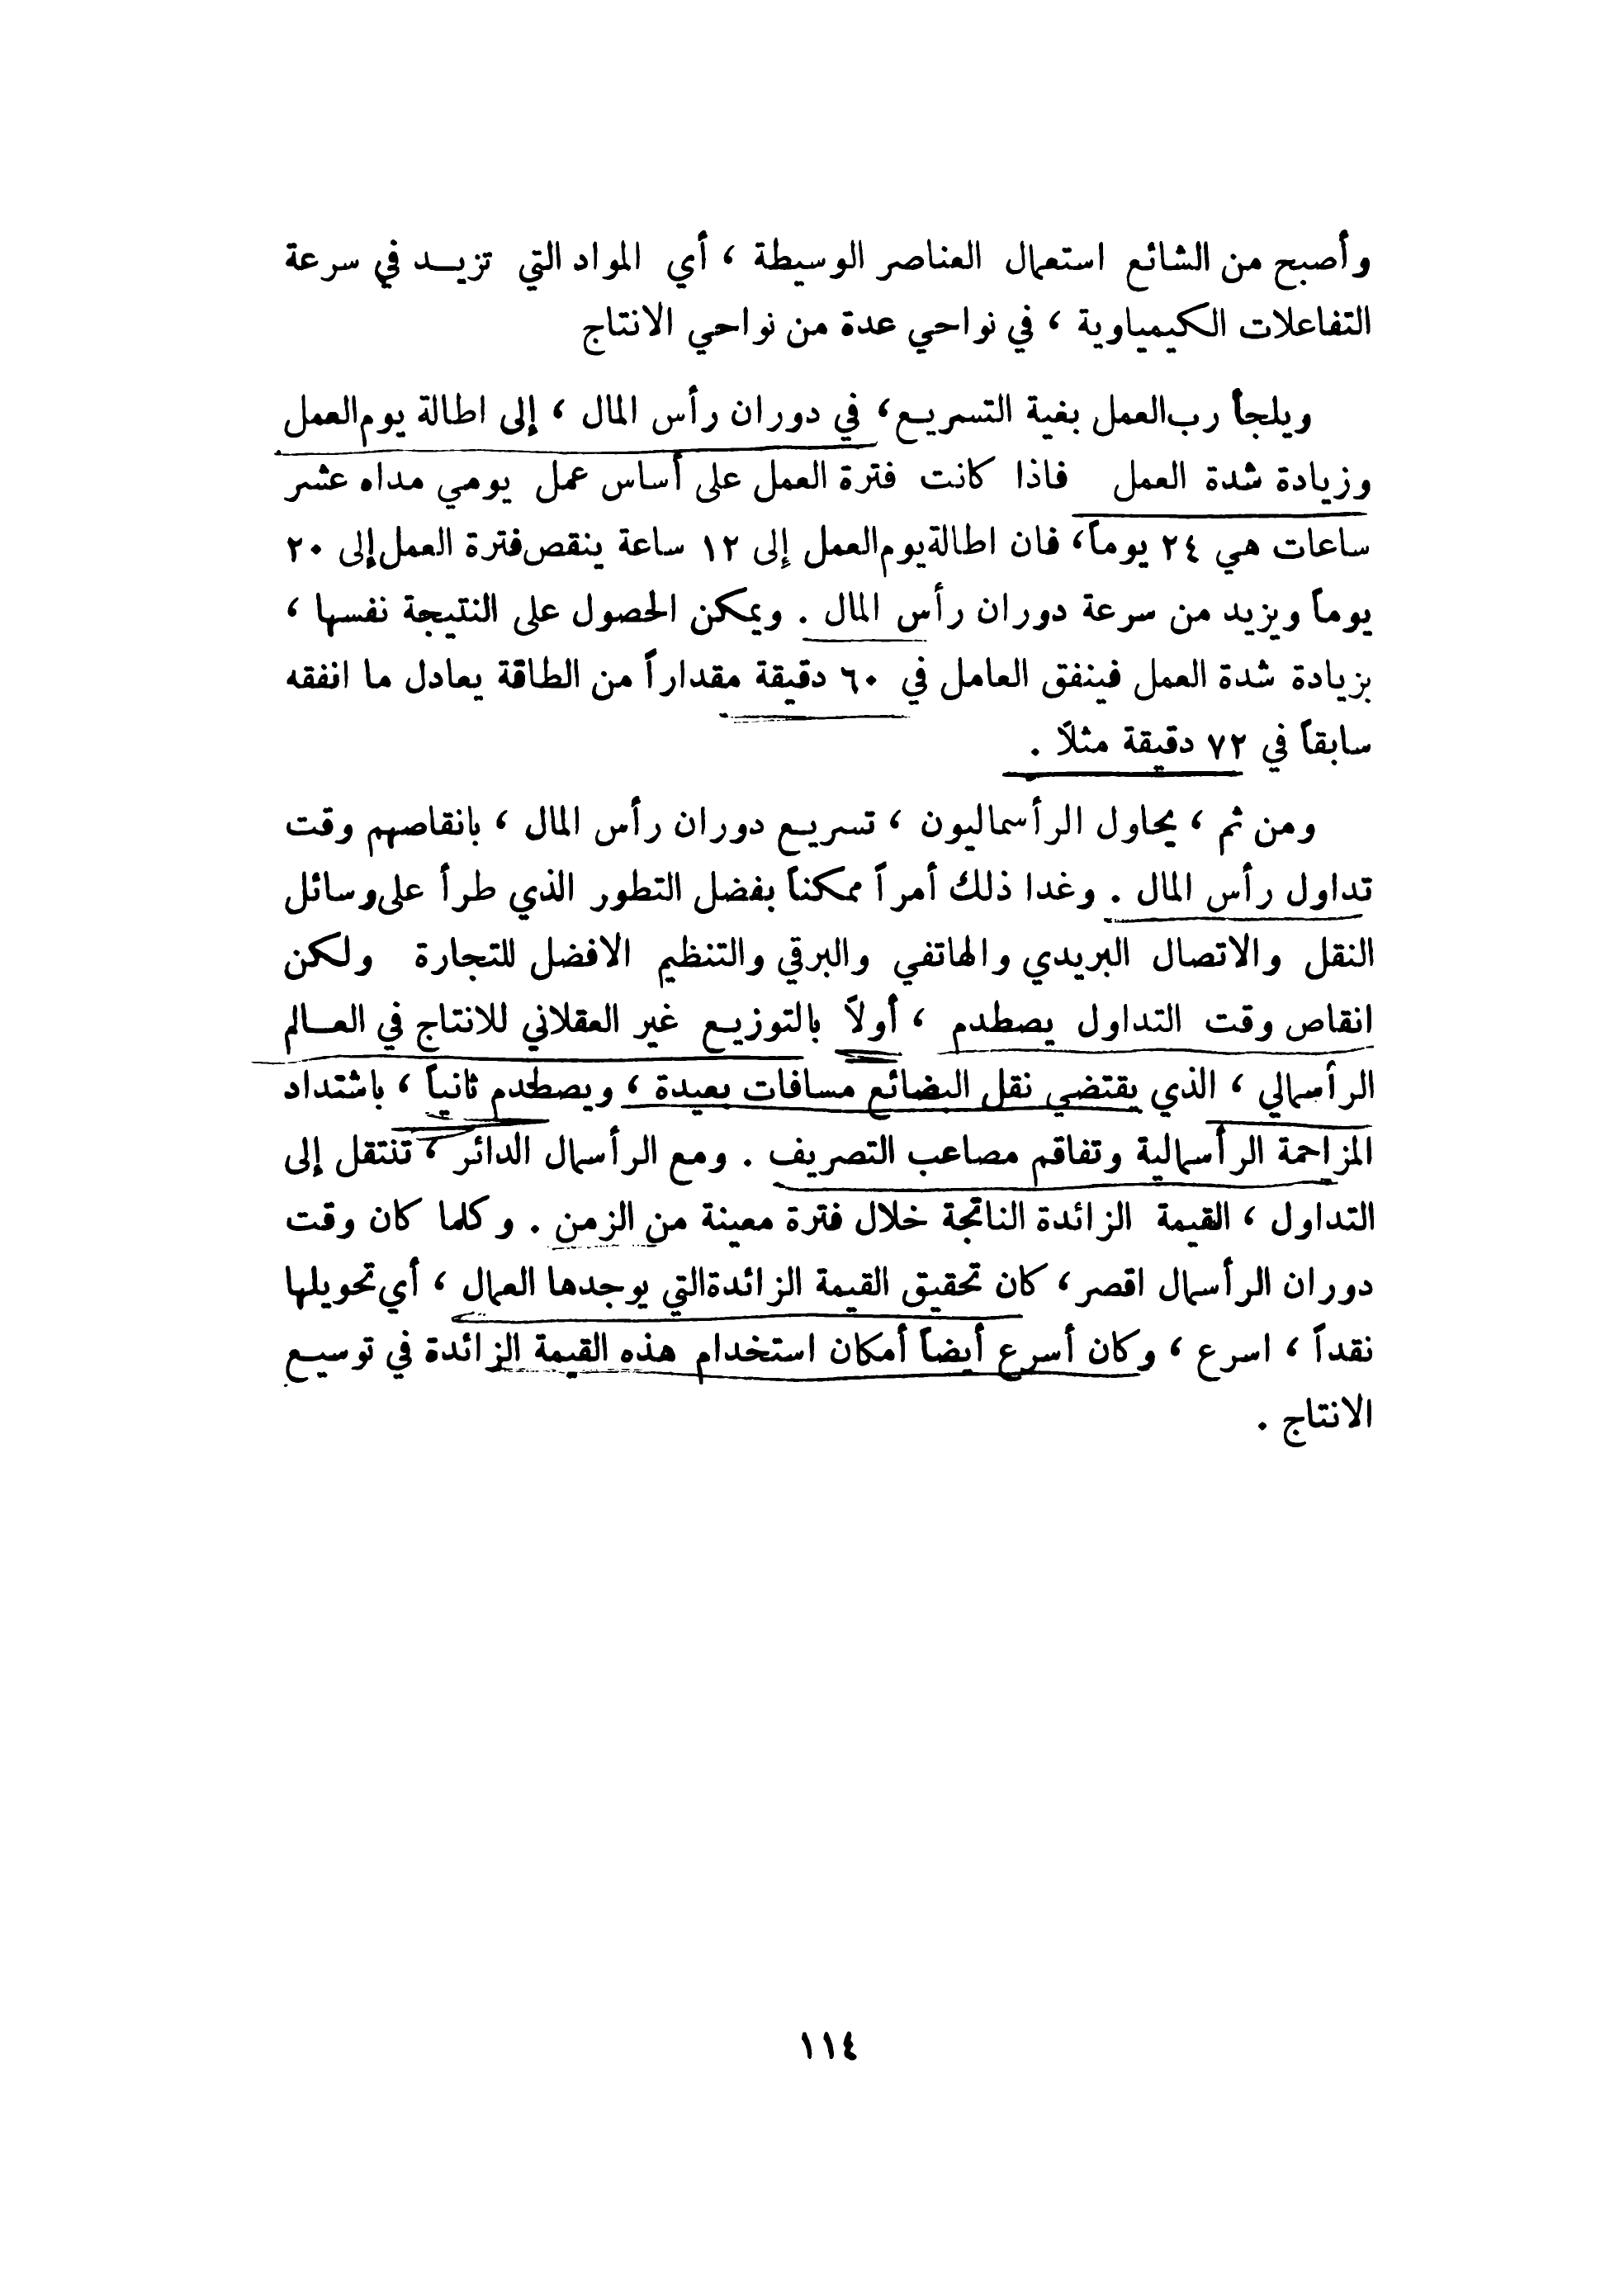 وأصبح من الشائع استعمال العناصر الوسيطة ، أي المواد التي تزيـد في سرعة
التفاعلات الكيمياوية ، في نواحي عدة من نواحي الانتاج
ويلجأ رب العمل بغية التسريع ، في دوران رأس المال ، إلى اطالة يوم العمل
وزيادة شدة العمل فاذا كانت فترة العمل على أساس عمل يومي مداه عشر
ساعات هي ٢٤ يوماً ، فان اطالة يوم العمل إلى ١٢ ساعة ينقص فترة العمل إلى ٢٠
يوماً ويزيد من سرعة دوران رأس المال . ويمكن الحصول على النتيجة نفسها ،
بزيادة شدة العمل فينفق العامل في ٦٠ دقيقة مقداراً من الطاقة يعادل ما انفقه
سابقاً في ٧٢ دقيقة مثلاً .
ومن ثم ، يحاول الرأسماليون ، تسريع دوران رأس المال ، بانقاصهم وقت
تداول رأس المال . وغدا ذلك أمراً ممكناً بفضل التطور الذي طرأ على وسائل
النقل والاتصال البريدي والهاتفي والبرقي والتنظيم الافضل للتجارة ولكن
انقاص وقت التداول يصطدم ، أولاً بالتوزيع غير العقلاني للانتاج في العـالم
الرأسمالي ، الذي يقتضي نقل البضائع مسافات بعيدة ، ويصطدم ثانياً ، باشتداد
المزاحمة الرأسمالية وتفاقم مصاعب التصريف . ومع الرأسمال الدائر ، تنتقل إلى
التداول ، القيمة الزائدة الناتجة خلال فترة معينة من الزمن . وكلما كان وقت
دوران الرأسمال اقصر ، كان تحقيق القيمة الزائدة التي يوجدها العمال ، أي تحويلها
نقداً ، اسرع ، وكان أسرع أيضاً أمكان استخدام هذه القيمة الزائدة في توسيع
الانتاج .
١١٤